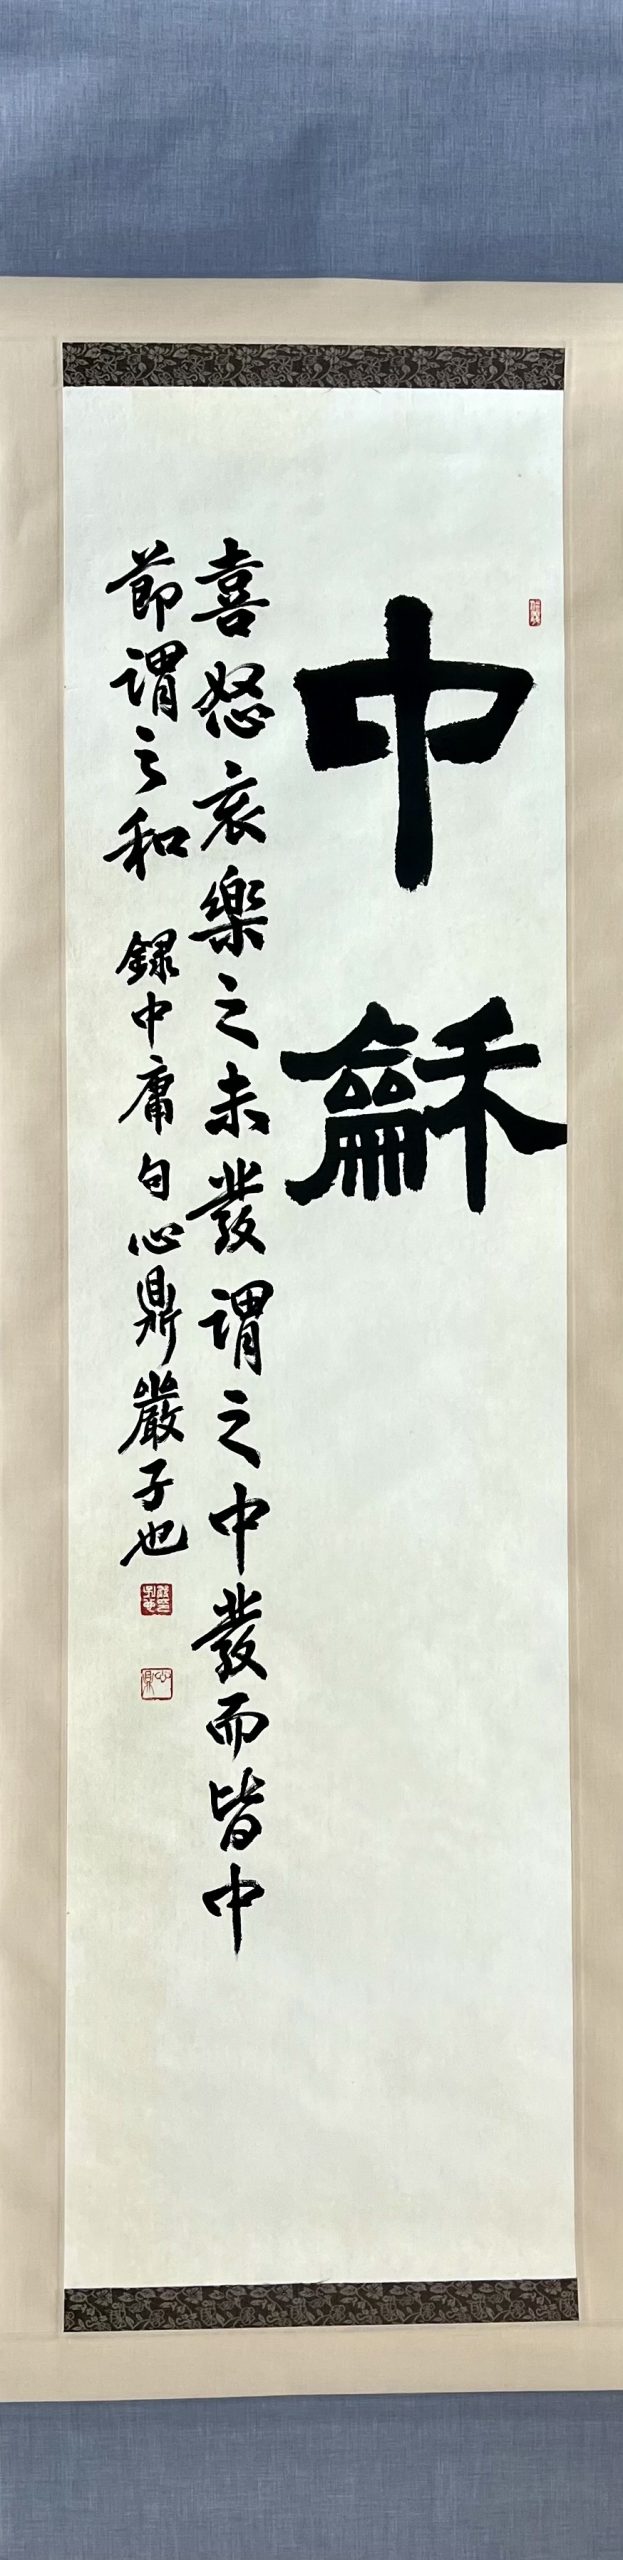 中龢
喜怒哀樂之未發謂之中發而皆中
節謂之和 録中庸句心鼎嚴子也